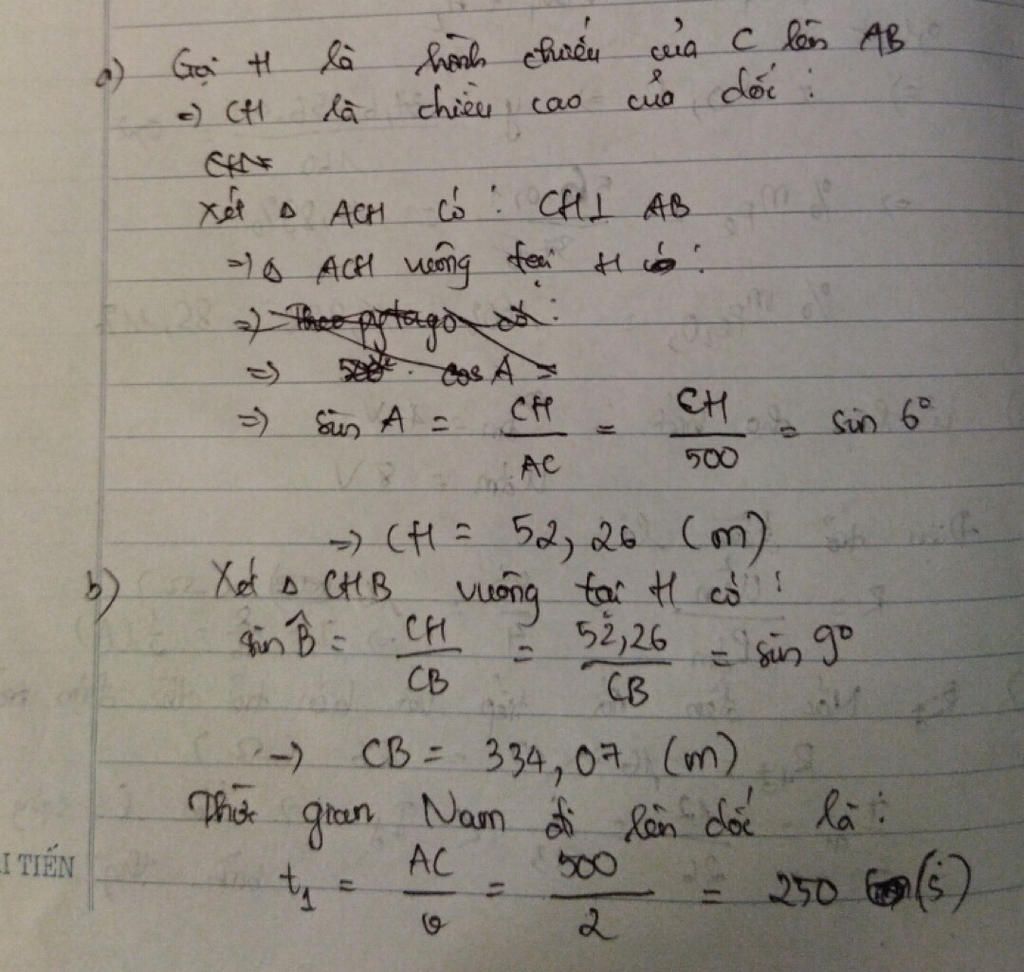 a) Gọi H là hình chiếu của C lên AB
=) CH là chiều cao của dốc :
CHN
Xét Δ ACH có : CH ⊥ AB
=) Δ ACH vuông tại H có :
=) Theo pytago có :
=) 500² . cos A =
=) sin A = CH/AC = CH/500 = sin 6°
=) CH = 52,26 (m)
b) Xét Δ CHB vuông tại H có :
sin B̂ = CH/CB = 52,26/CB = sin 9°
-) CB = 334,07 (m)
Thời gian Nam đi lên dốc là :
t₁ = AC/v = 500/2 = 250 (s)
I TIẾN